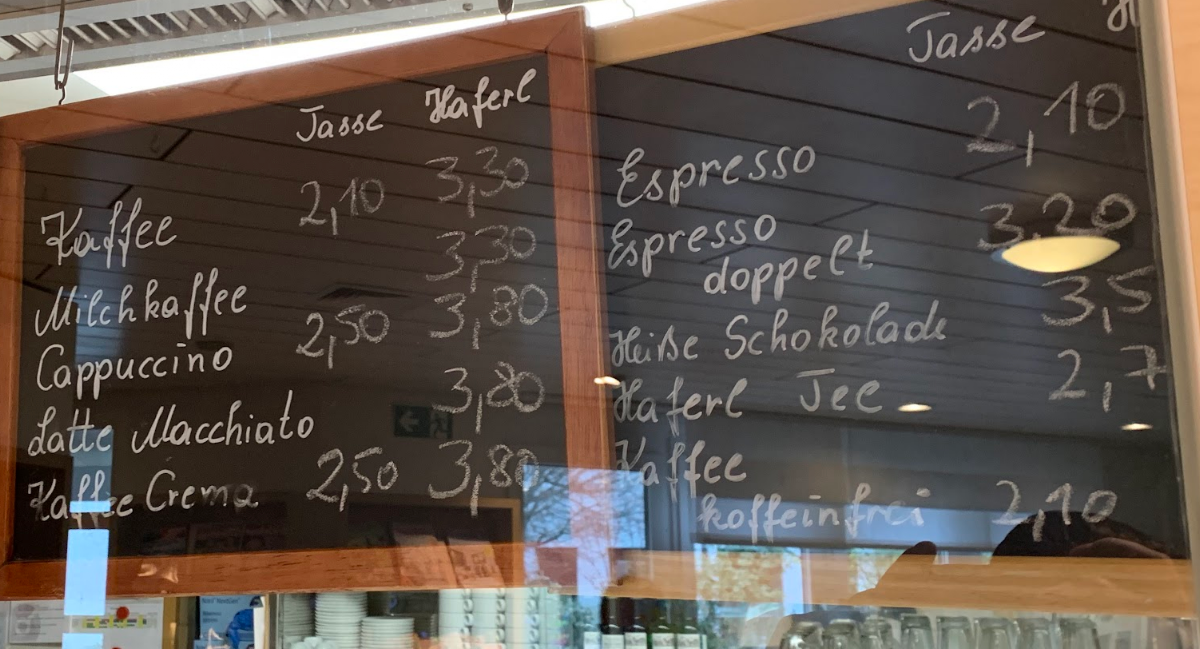 Tasse Haferl
Kaffee 2,10 3,30
Milchkaffee 3,30
Cappuccino 2,50 3,80
Latte Macchiato 3,80
Kaffee Crema 2,50 3,80
Tasse
Espresso 2,10
Espresso
doppelt 3,20
Heiße Schokolade 3,5
Haferl Tee 2,7
Kaffee
koffeinfrei 2,10